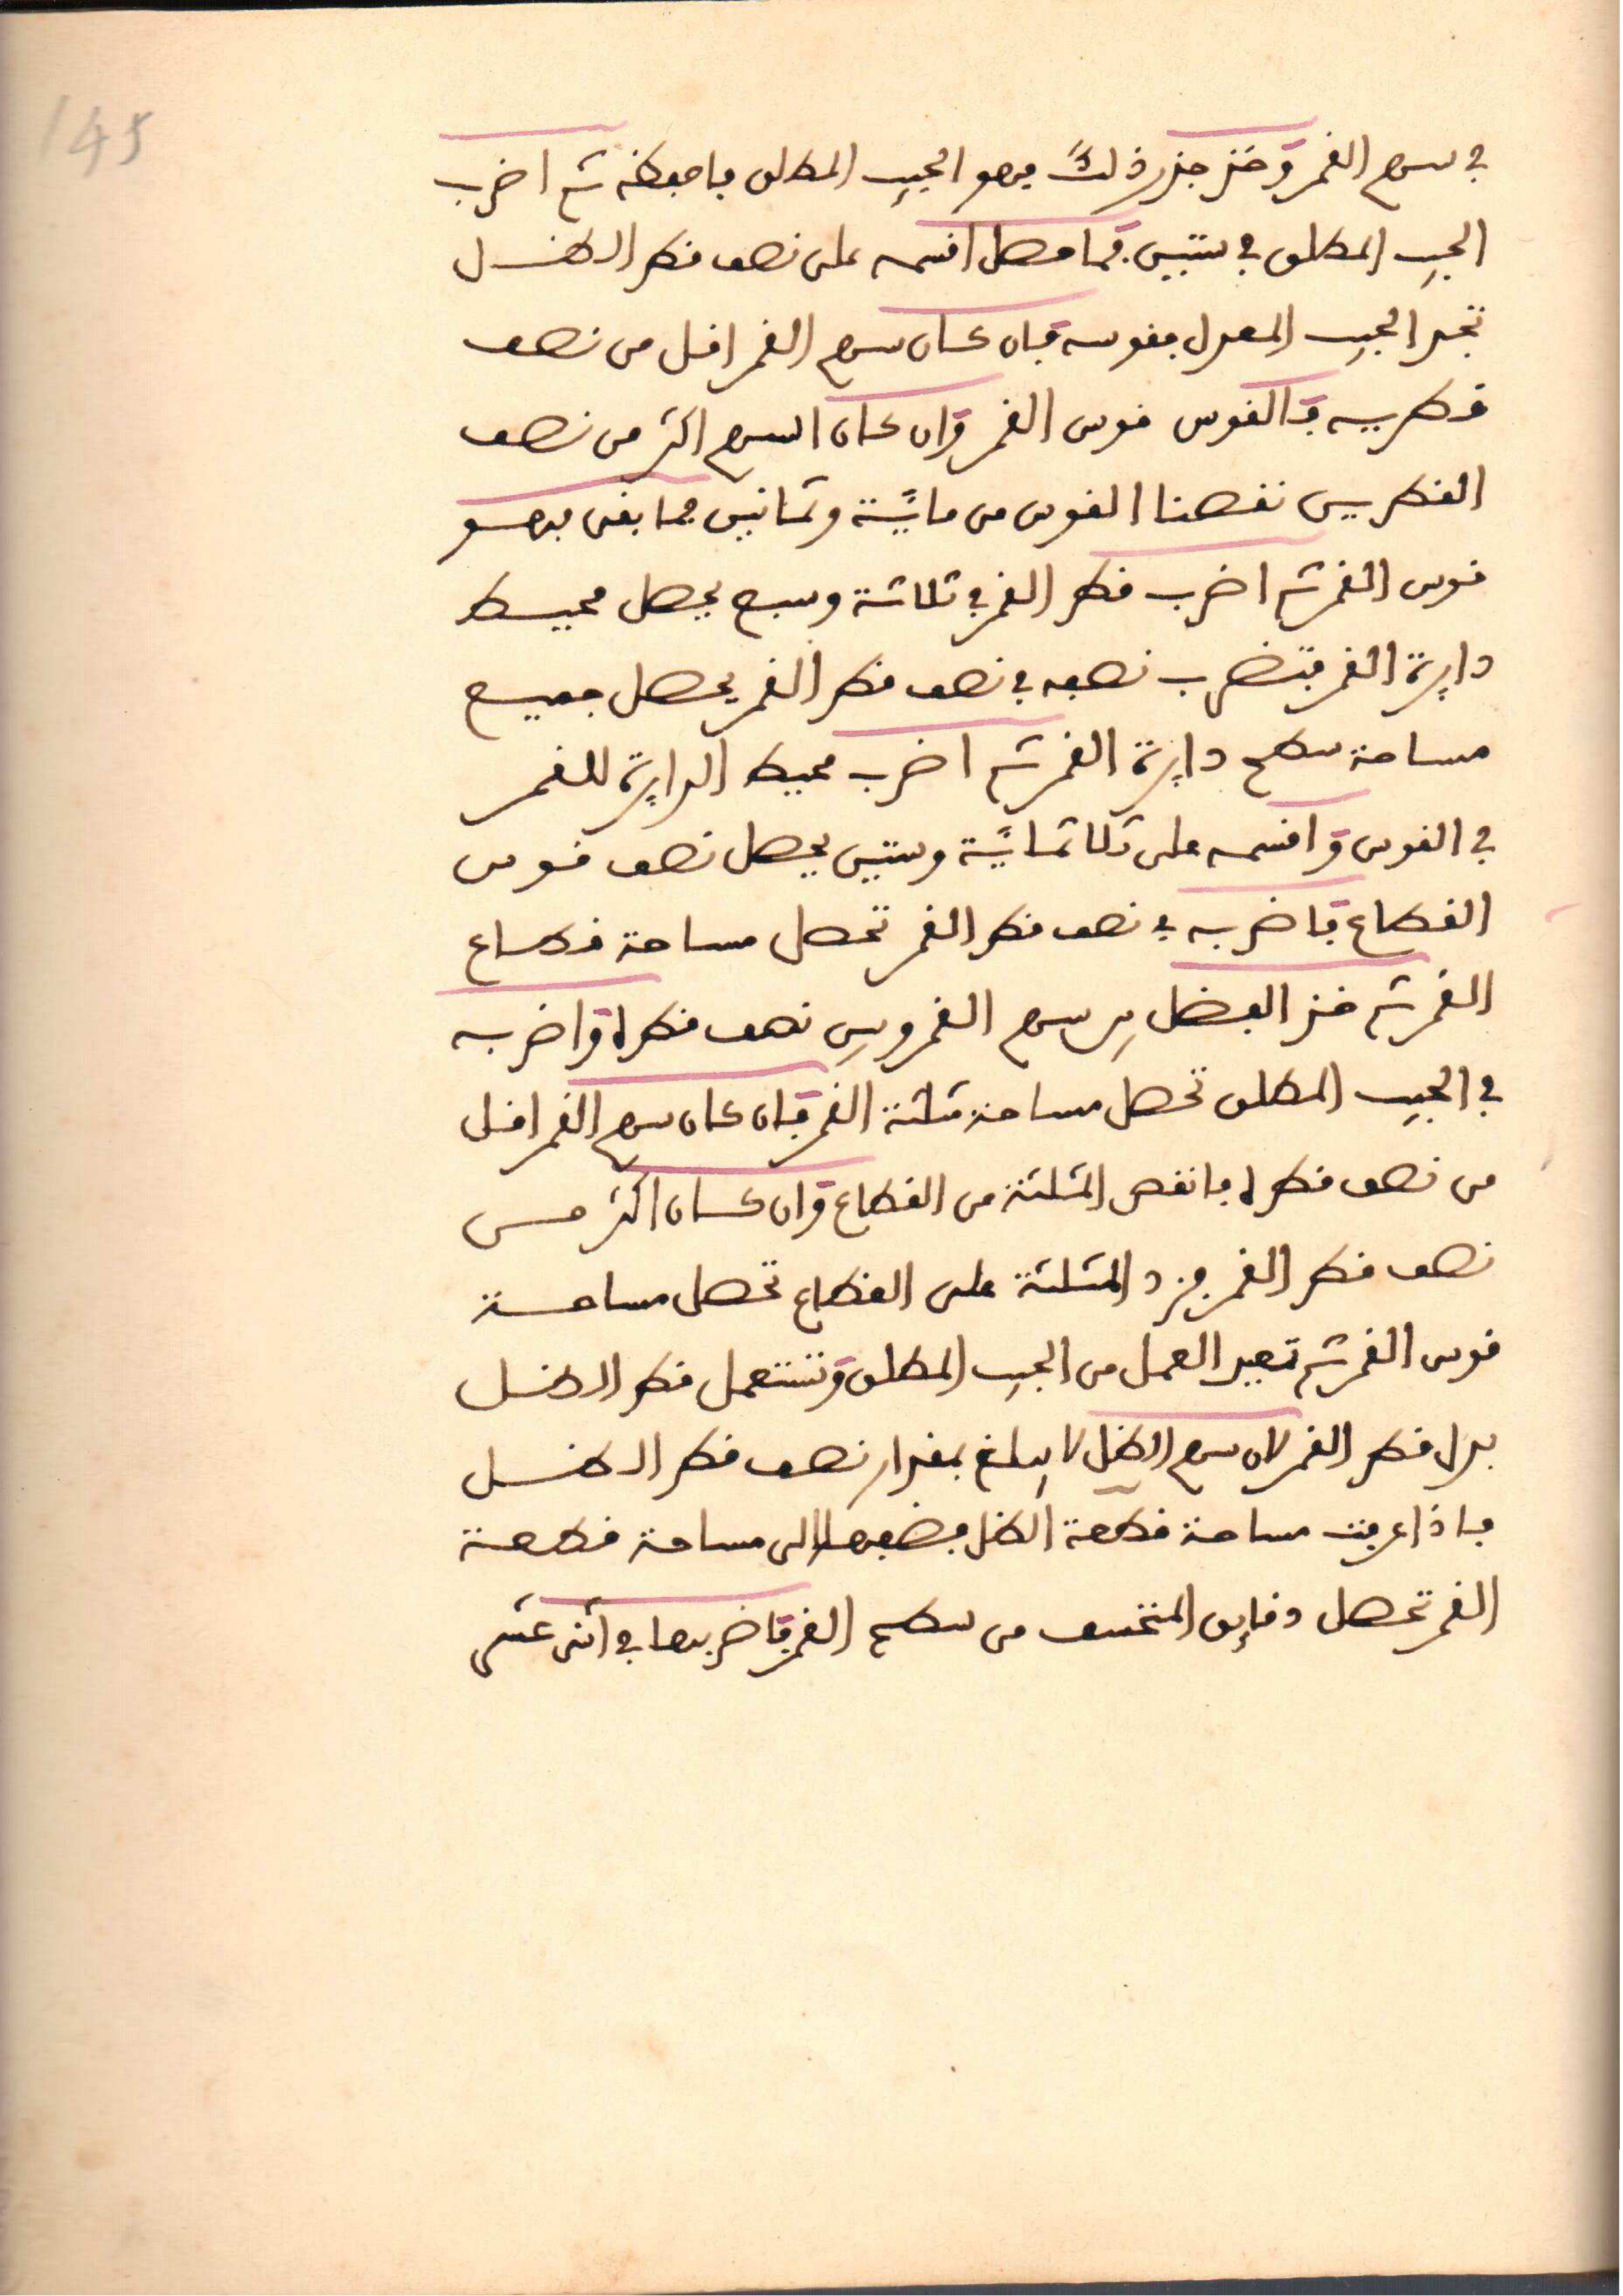 145
في سهم القمر وخذ جذر ذلك فهو الجيب المطلق فاحفظه ثم اضرب
الجيب المطلق في ستين فما حصل اقسمه على نصف قطر الظل
تجد الجيب المعدل فقوسه فان كان سهم القمر اقل من نصف
قطريه فالقوس قوس القمر وان كان السهم اكثر من نصف
القطرين نقصنا القوس من مائة وثمانين فما بقى فهو
قوس القمر ثم اضرب قطر القمر في ثلاثة وسبع يحصل محيط
دايرة القمر فتضرب نصفه في نصف قطر القمر يحصل جميع
مساحة سطح دايرة القمر ثم اضرب محيط الدايرة للقمر
في القوس واقسمه على ثلاثماية وستين يحصل نصف قوس
القطاع فاضربه في نصف قطر القمر تحصل مساحة قطاع
القمر ثم خذ الفضل بين سهم القمر وبين نصف قطره واضربه
في الجيب المطلق تحصل مساحة مثلثة القمر فان كان سهم القمر اقل
من نصف قطره فانقص المثلثة من القطاع وان كان اكثر من
نصف قطر القمر فزد المثلثة على القطاع تحصل مساحة
قوس القمر ثم تعيد العمل من الجيب المطلق وتستعمل قطر الظل
بدل قطر القمر لان سهم الظل لا يبلغ بمقدار نصف قطر الظل
فاذا عرفت مساحة قطعة الظل فضفها الى مساحة قطعة
القمر تحصل دقايق المنخسف من سطح القمر فاضربها في اثنى عشر